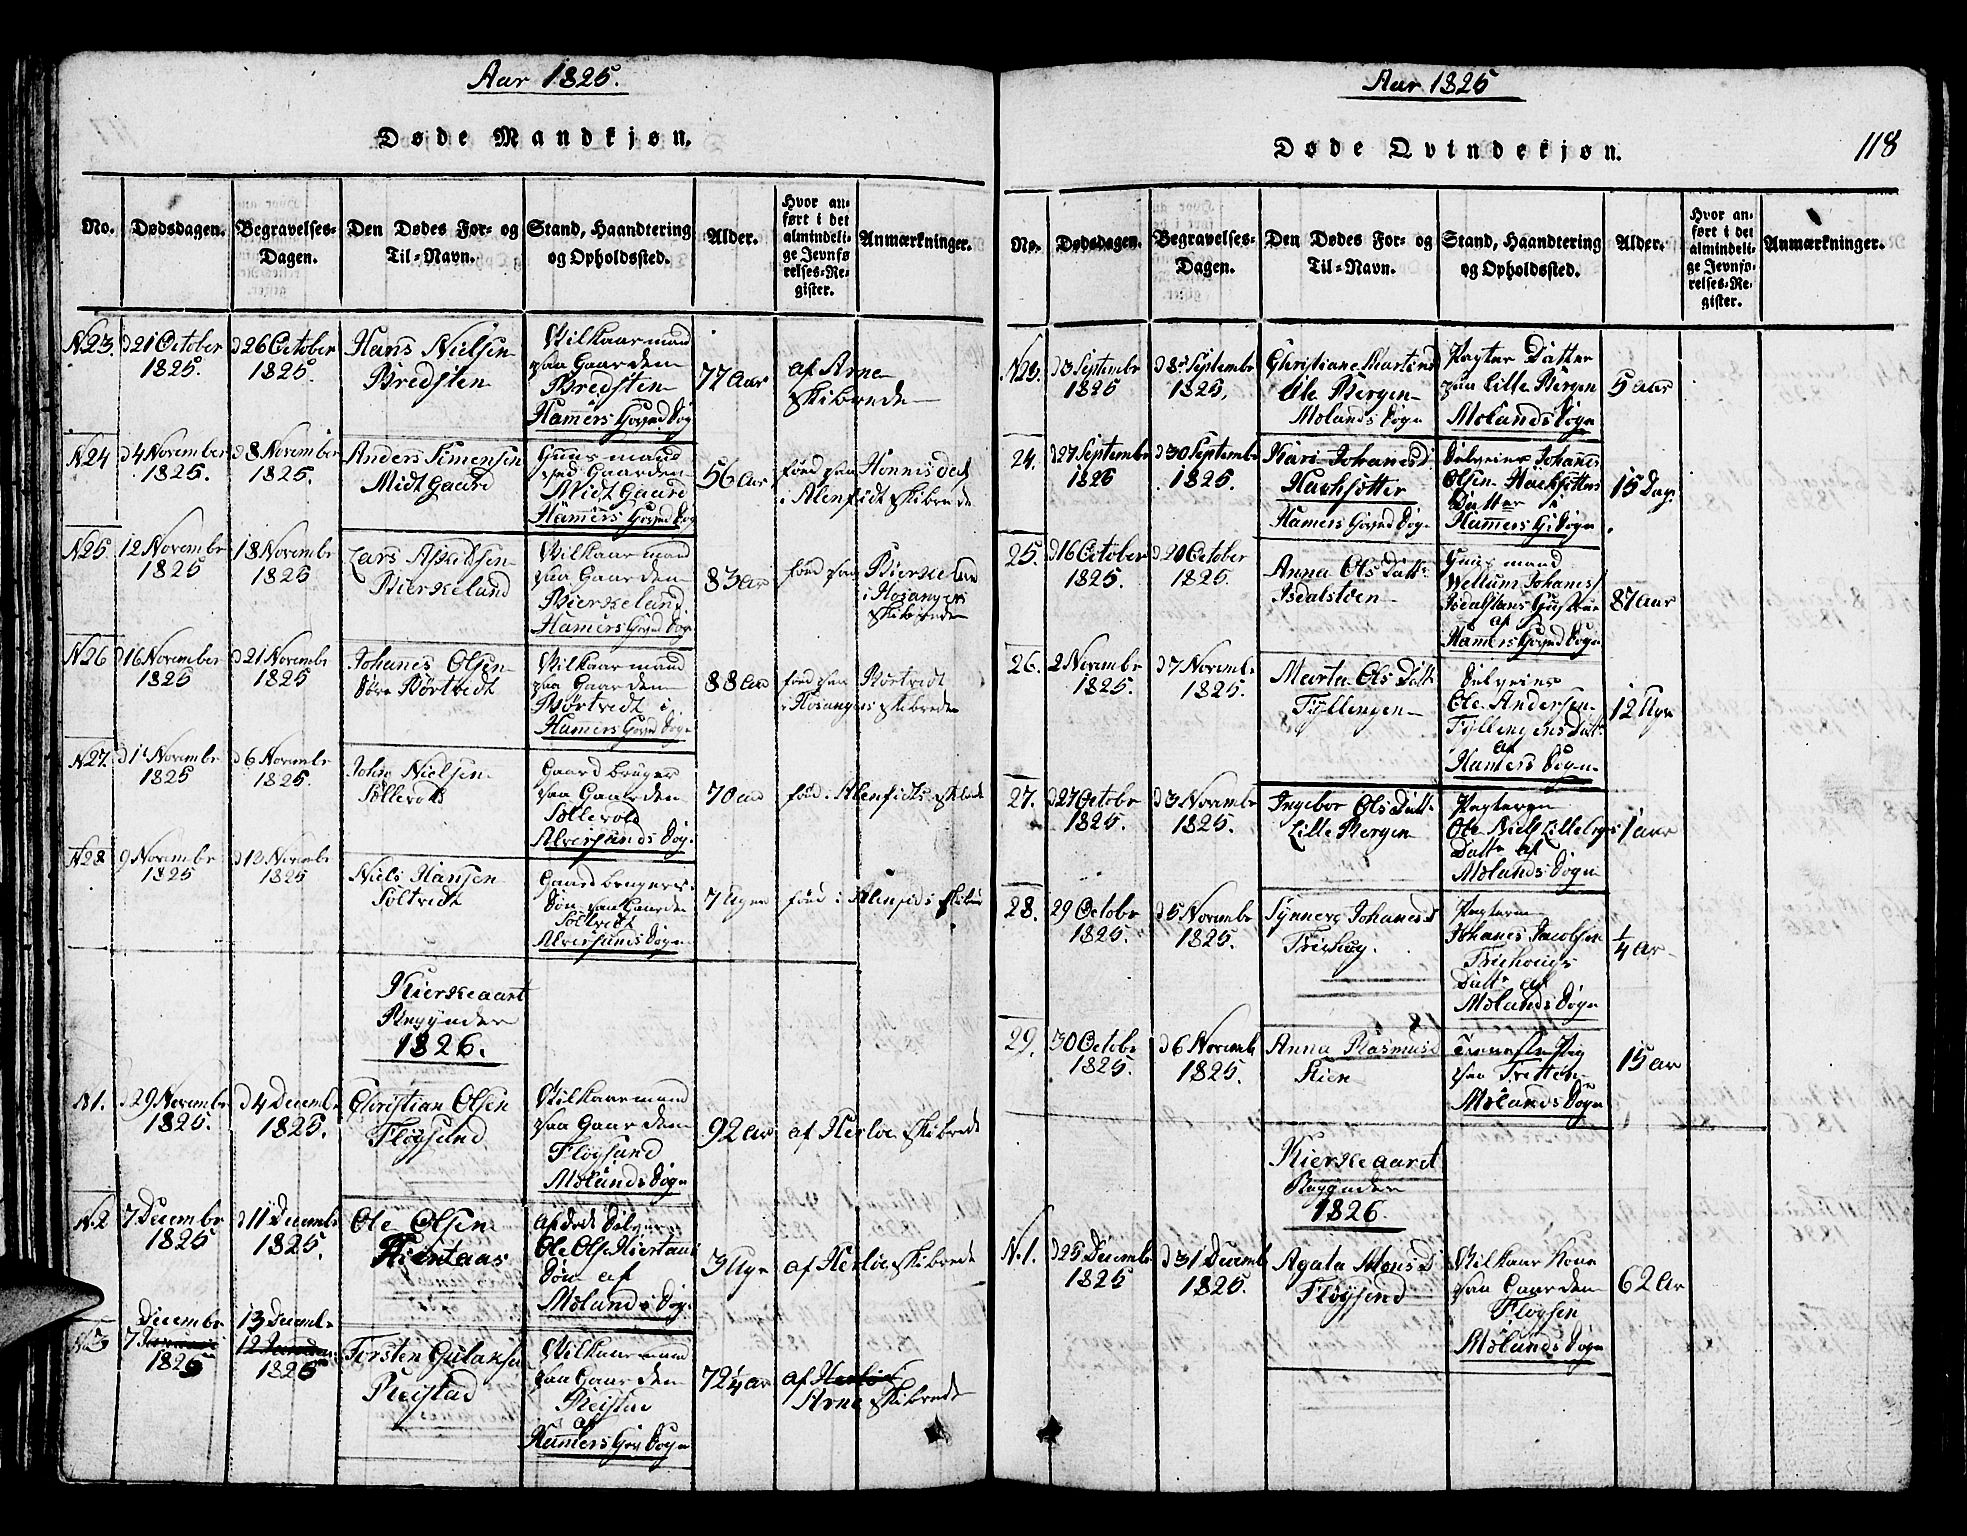 Aar 1825.
Døde Mandkjøn.
No.
Dødsdagen.
Begravelses-
Dagen.
Den Dødes For- og
Til-Navn.
Stand, Haandtering
og Opholdssted.
Alder.
Hvor an-
ført i det
almindeli-
ge Jevnfø-
relses-Re-
gister.
Anmærkninger.
N23.
d 21 October
1825.
d 26 October
1825.
Hans Nielsen
Bredsten
Vilkaarmand
paa Gaarden
Bredsten
Hamers Sogn
77 Aar
af Arne
skibrede
N24
d 4 November
1825.
d 8 November
1825.
Anders Simensen
Midt Gaard
Huusmand
Gaarden
Midt Gaard
Hamers Sogn
56 Aar
föed paa
i Alenfidt skibrede
N25.
12 Novembr
1825
18 Novembr
1825
Lars
Bierkeland
Vilkaarmand
paa Gaarden
Bierkeland
Hamers Sogn
83 Ar
föed paa Bierkeland
i Hosangers
skibrede
N26
d 16 November
1825
d 21 Novembr
1825
Johanes Olsen
Börtvedt
Vilkaarmand
paa Gaarden
Börtvedt i
Hamers Sogn
88 Aar
föed paa Börtvedt
Hosangers skibrede
N27.
d 1 Novembr
1825
d 6 Novembr
1825.
John Nielsen
Söllevold
Gaardbruger
paa Gaarden
Söllevold
Alversunds Sogn
70 Aar
föed i Alenfidts skibrede
N28
9 Novembr
1825
d 13 Novembr
1825
Niels Hansen
Söltvedt
Gaardbrugers
Sön paa Gaarden
Söltvedt
Alversunds Sogn
7 Uger
föed i Alenfidts skibrede
Kierkeaart
Begynder
1826.
N1.
d 29 Novembr
1825.
d 4 Decembr
1825.
Christian Olsen
Flöysand
Vilkaarmand
paa Gaarden
Flöysand
Mölands Sogn
92 Ar
af Herlöe skibrede
N.2
7 Decembr
1825
d 11 Decembr
1825.
Ole Olsen
Hiertaas
Ole Olsen Hiertaas
Sön af
Mölands Sogn
3 Uger
af Herlöe skibrede
N3
Decembr
7
1825
13 Decembr
1825
Torsten
Reistad
Vilkaarmand
paa Gaarden
Reistad
af
Hamers Sogn
72 1/4 ar
af Herlöe
Arne skibrede
Aar 1825
Døde Qvindekjøn.
118
No.
Dødsdagen.
Begravelses-
Dagen.
Den Dødes For- og
Til-Navn.
Stand, Haandtering
og Opholdssted.
Alder.
Hvor an-
ført i det
almindeli-
ge Jevnfø-
relses-Re-
gister.
Anmærkninger.
N23.
d 3 September
1825
d 8 September
1825.
Christiane
Bergen
Molands Sogn
Datter
paa Lille Bergen
Molands Sogn
5 aar
24.
d 27 September
1825
d 30 September
1825.
Kari Johanesd
Hamers Sogn
Johanes
Olsen
Datter i
Hamers G. Sogn
15 Dag.
25.
d 16 October
1825.
d 20 October
1825.
Anna Ols Datt.
Isdalstöen
Huusmand
Johanes
af
Hamers Sogn
87 Aar
26.
2 Novembr
1825.
d 7 Novembr
1825.
Marta Ols Datt
Tyllengen
Ole Andersen
Tyllengens Datt.
af
Hamers Sogn
12 Uger
27.
d 27 Octobr
1825.
d 3 Novembr
1825.
Ingebor Ols Datt.
Lille Bergen
Pagteren
Ole Niels
Datt. af
Molands Sogn
1 aar
28.
29 Octobr
1825.
d 5 Novembr
1825.
Synneve Johanesd
Friehoug.
Pagteren
Johanes Jacobsen
Friehougs
Datt. af
Mölands Sogn
1/4 Ar
29.
30 Octobr
1825.
d 6 Novembr
1825.
Anna Rasmusd
paa Fretten
Mölands Sogn
15 ar
Kierkeaaret
Begynder
1826.
N.1.
d 25 Decembr
1825
d 31 Decembr
1825.
Agata Monsd
Flöysand
Vilkaar Kone
paa Gaarden
Flöysen
Mölands Sogn
62 Ar